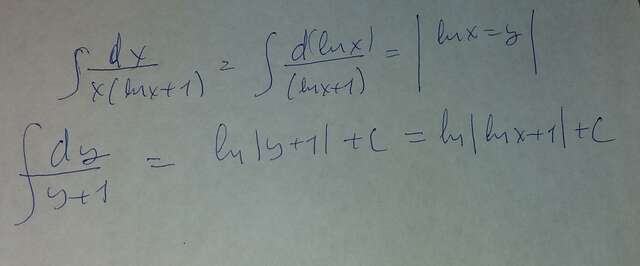 ∫ dx / x(lnx+1) = ∫ d(lnx) / (lnx+1) = | lnx=y |
∫ dy / y+1 = ln|y+1| + C = ln|lnx+1| + C